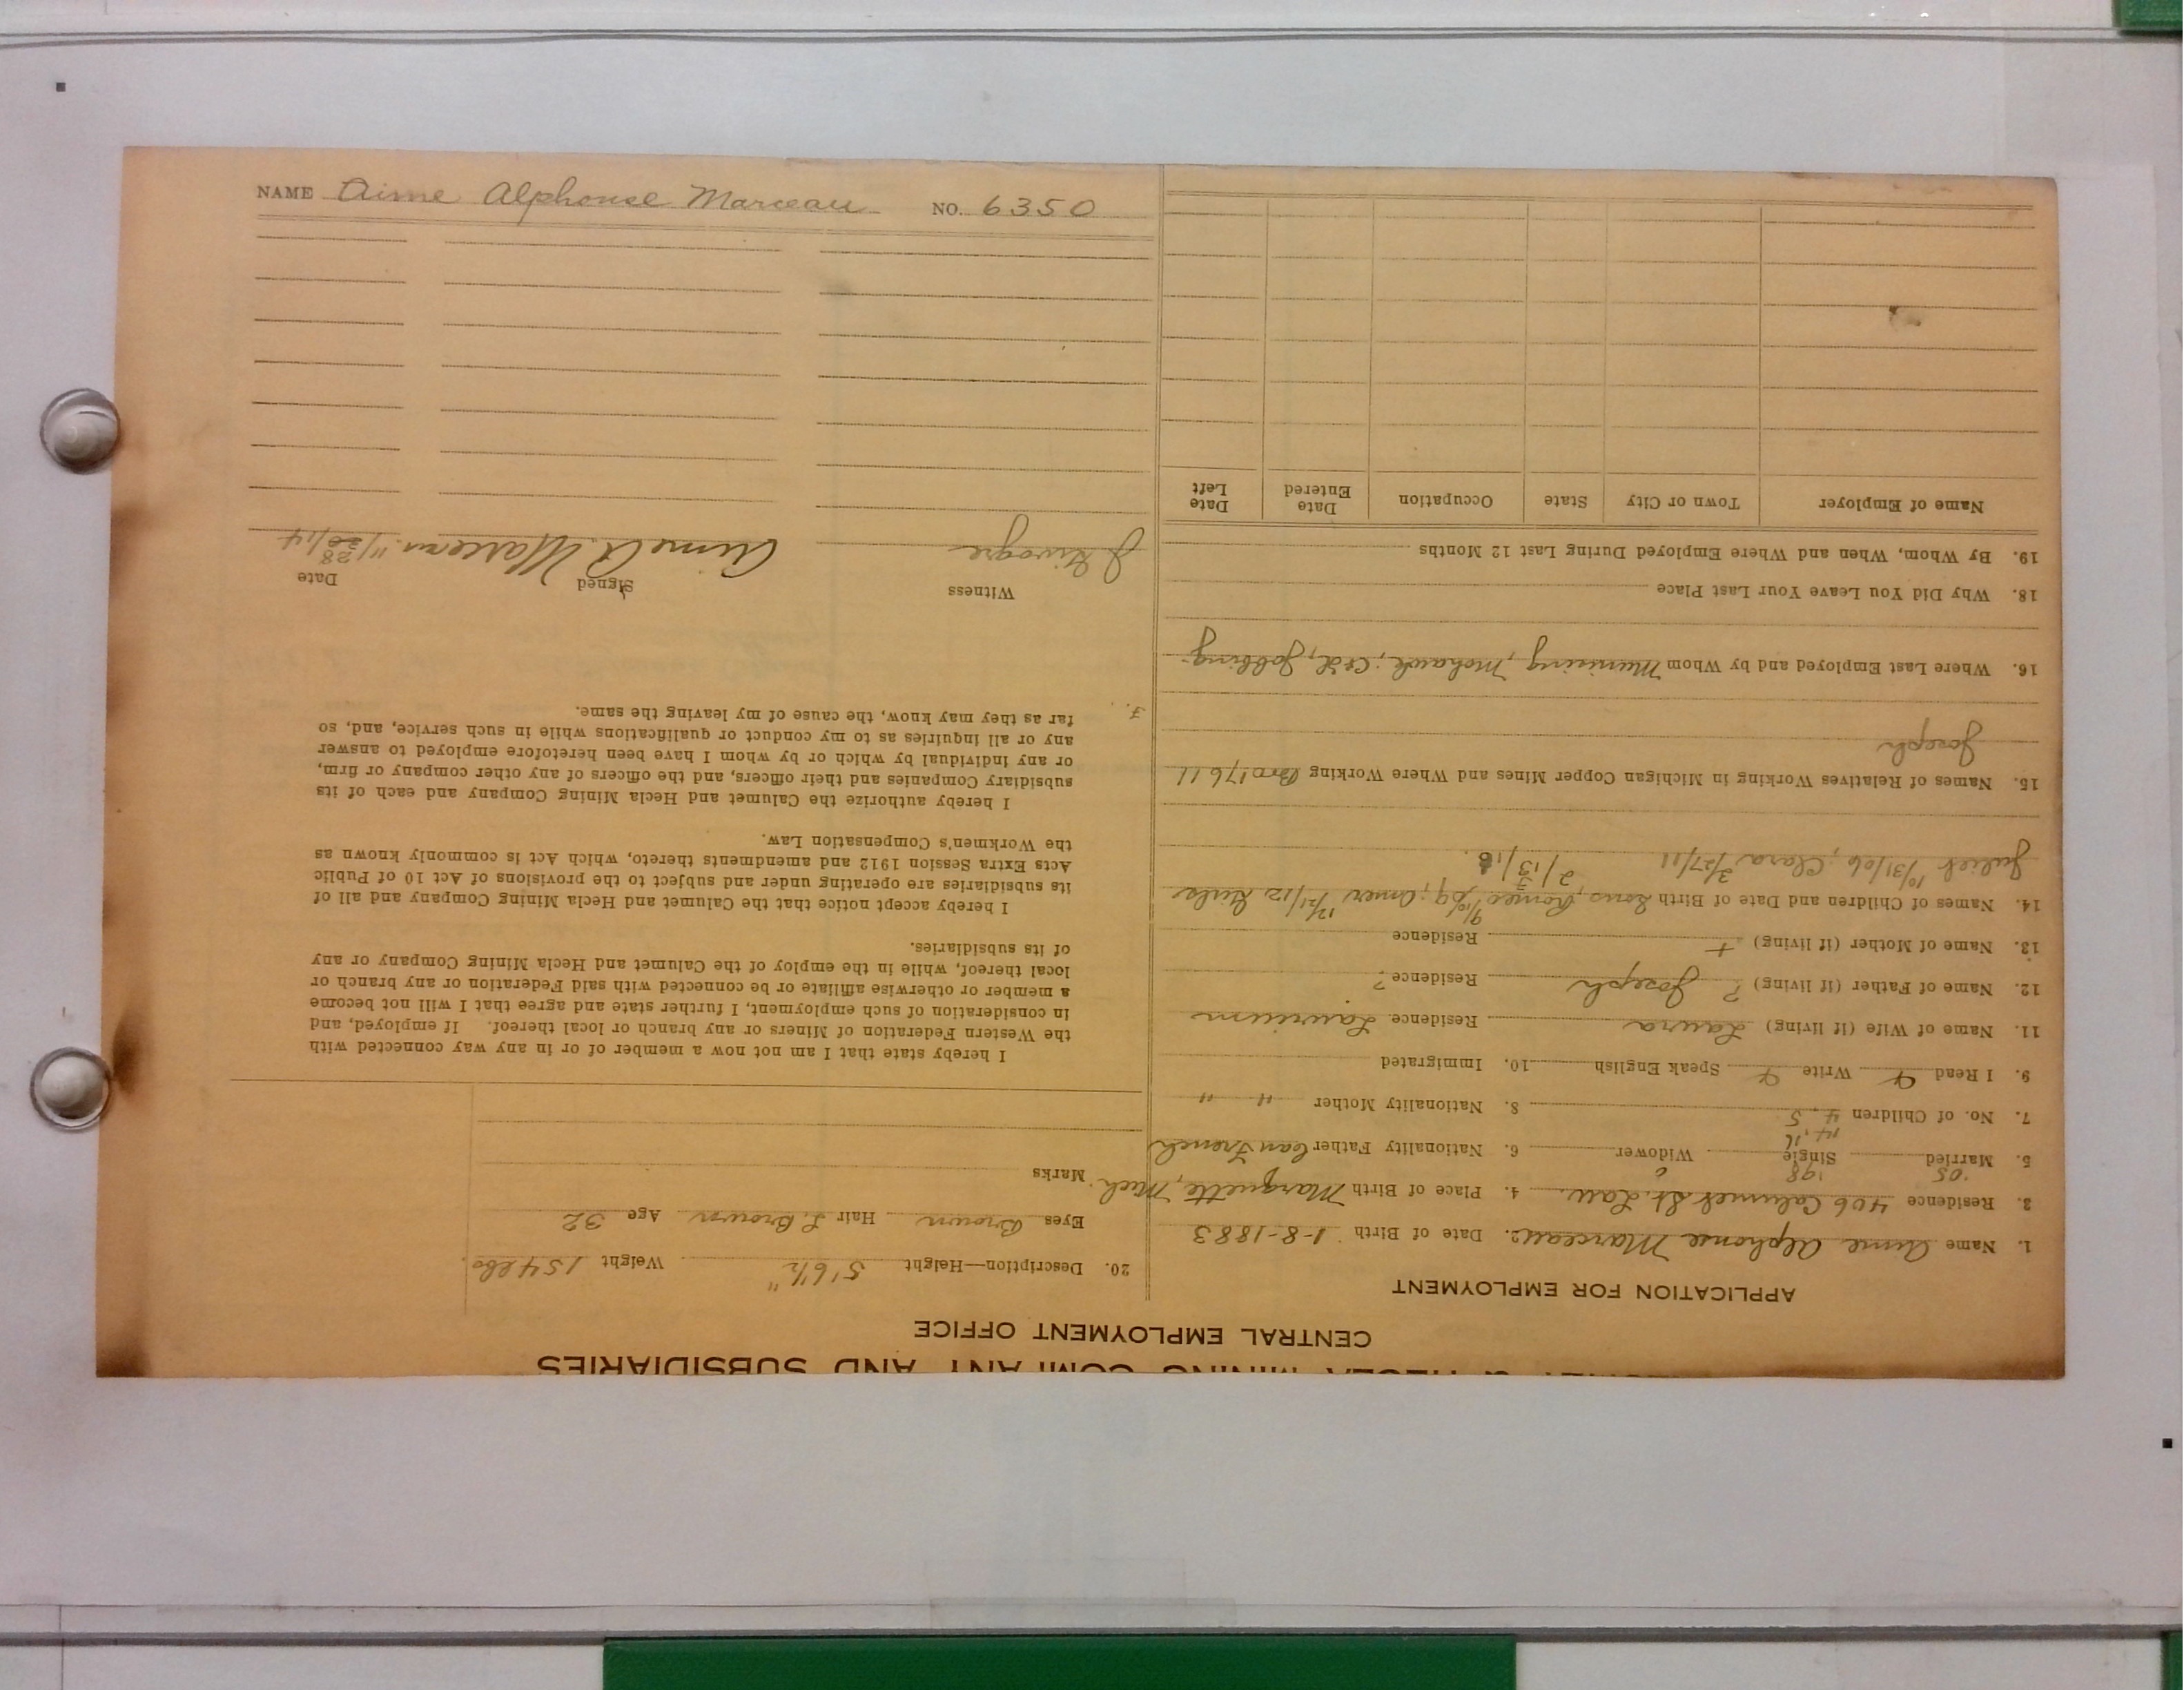 NAME Aime Alphonse Marceau NO. 6350
CALUMET & HECLA MINING COMPANY AND SUBSIDIARIES
CENTRAL EMPLOYMENT OFFICE
APPLICATION FOR EMPLOYMENT
1. Name Aime Alphonse Marceau 2. Date of Birth 1-8-1883
3. Residence 406 Calumet St. Lau. 4. Place of Birth Marquette, Mich.
'05 '98
5. Married Single Widower 6. Nationality Father Can French
7. No. of Children 4, 5 8. Nationality Mother " "
9. I Read Write Speak English 10. Immigrated
11. Name of Wife (if living) Laura Residence Laurium
12. Name of Father (if living) ? Joseph Residence ?
13. Name of Mother (if living) + Residence
14. Names of Children and Date of Birth Sons, Romeo 9/10/09; Omer 12/21/12
Juliet 10/31/06; Clara 3/27/11
15. Names of Relatives Working in Michigan Copper Mines and Where Working Bro 17611
Joseph
16. Where Last Employed and by Whom Munising, Mohawk; C&H, Jobbing
18. Why Did You Leave Your Last Place
19. By Whom, When and Where Employed During Last 12 Months
Name of Employer Town or City State Occupation Date Entered Date Left
20. Description—Height 5' 6½" Weight 154 lbs.
Eyes Brown Hair L. Brown Age 32
Marks
I hereby state that I am not now a member of or in any way connected with
the Western Federation of Miners or any branch or local thereof. If employed, and
in consideration of such employment, I further state and agree that I will not become
a member or otherwise affiliate or be connected with said Federation or any branch or
local thereof, while in the employ of the Calumet and Hecla Mining Company or any
of its subsidiaries.
I hereby accept notice that the Calumet and Hecla Mining Company and all of
its subsidiaries are operating under and subject to the provisions of Act 10 of Public
Acts Extra Session 1912 and amendments thereto, which Act is commonly known as
the Workmen's Compensation Law.
I hereby authorize the Calumet and Hecla Mining Company and each of its
subsidiary Companies and their officers, and the officers of any other company or firm,
or any individual by which or by whom I have been heretofore employed to answer
any or all inquiries as to my conduct or qualifications while in such service, and, so
far as they may know, the cause of my leaving the same.
Witness Signed Date
Aime A. Marceau 11/28/14